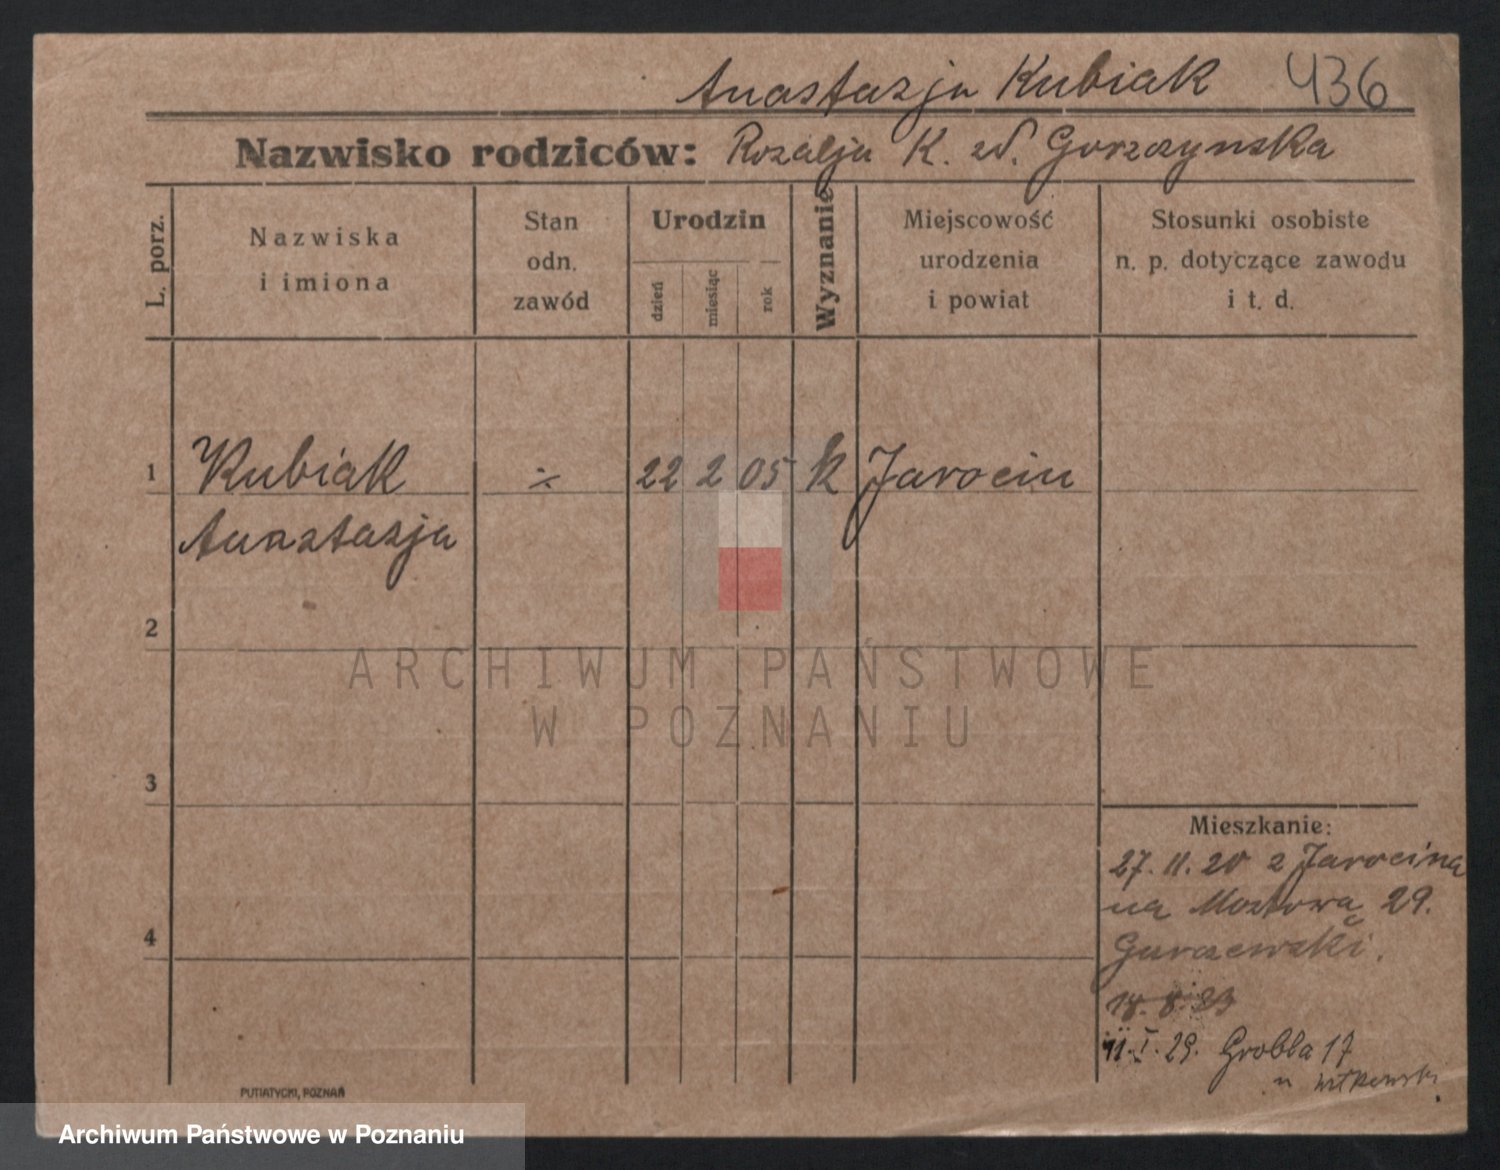 Anastazja Kubiak 436
Nazwisko rodziców: Rozalja K. zd. Gorzczynska
L. porz.
Nazwiska
i imiona
Stan
odn.
zawód
Urodzin
dzień
miesiąc
rok
Wyznanie
Miejscowość
urodzenia
i powiat
Stosunki osobiste
n. p. dotyczące zawodu
i t. d.
1 Kubiak ÷ 22 2 05 k Jarocin
Anastazja
2
3
4
Mieszkanie:
27. 11. 20 z Jarocina
na Mostową 29.
18. 8. 23
11. I. 29. Grobla 17
u Witkowski
PUTIATYCKI, POZNAŃ
ARCHIWUM PAŃSTWOWE
W POZNANIU
Archiwum Państwowe w Poznaniu